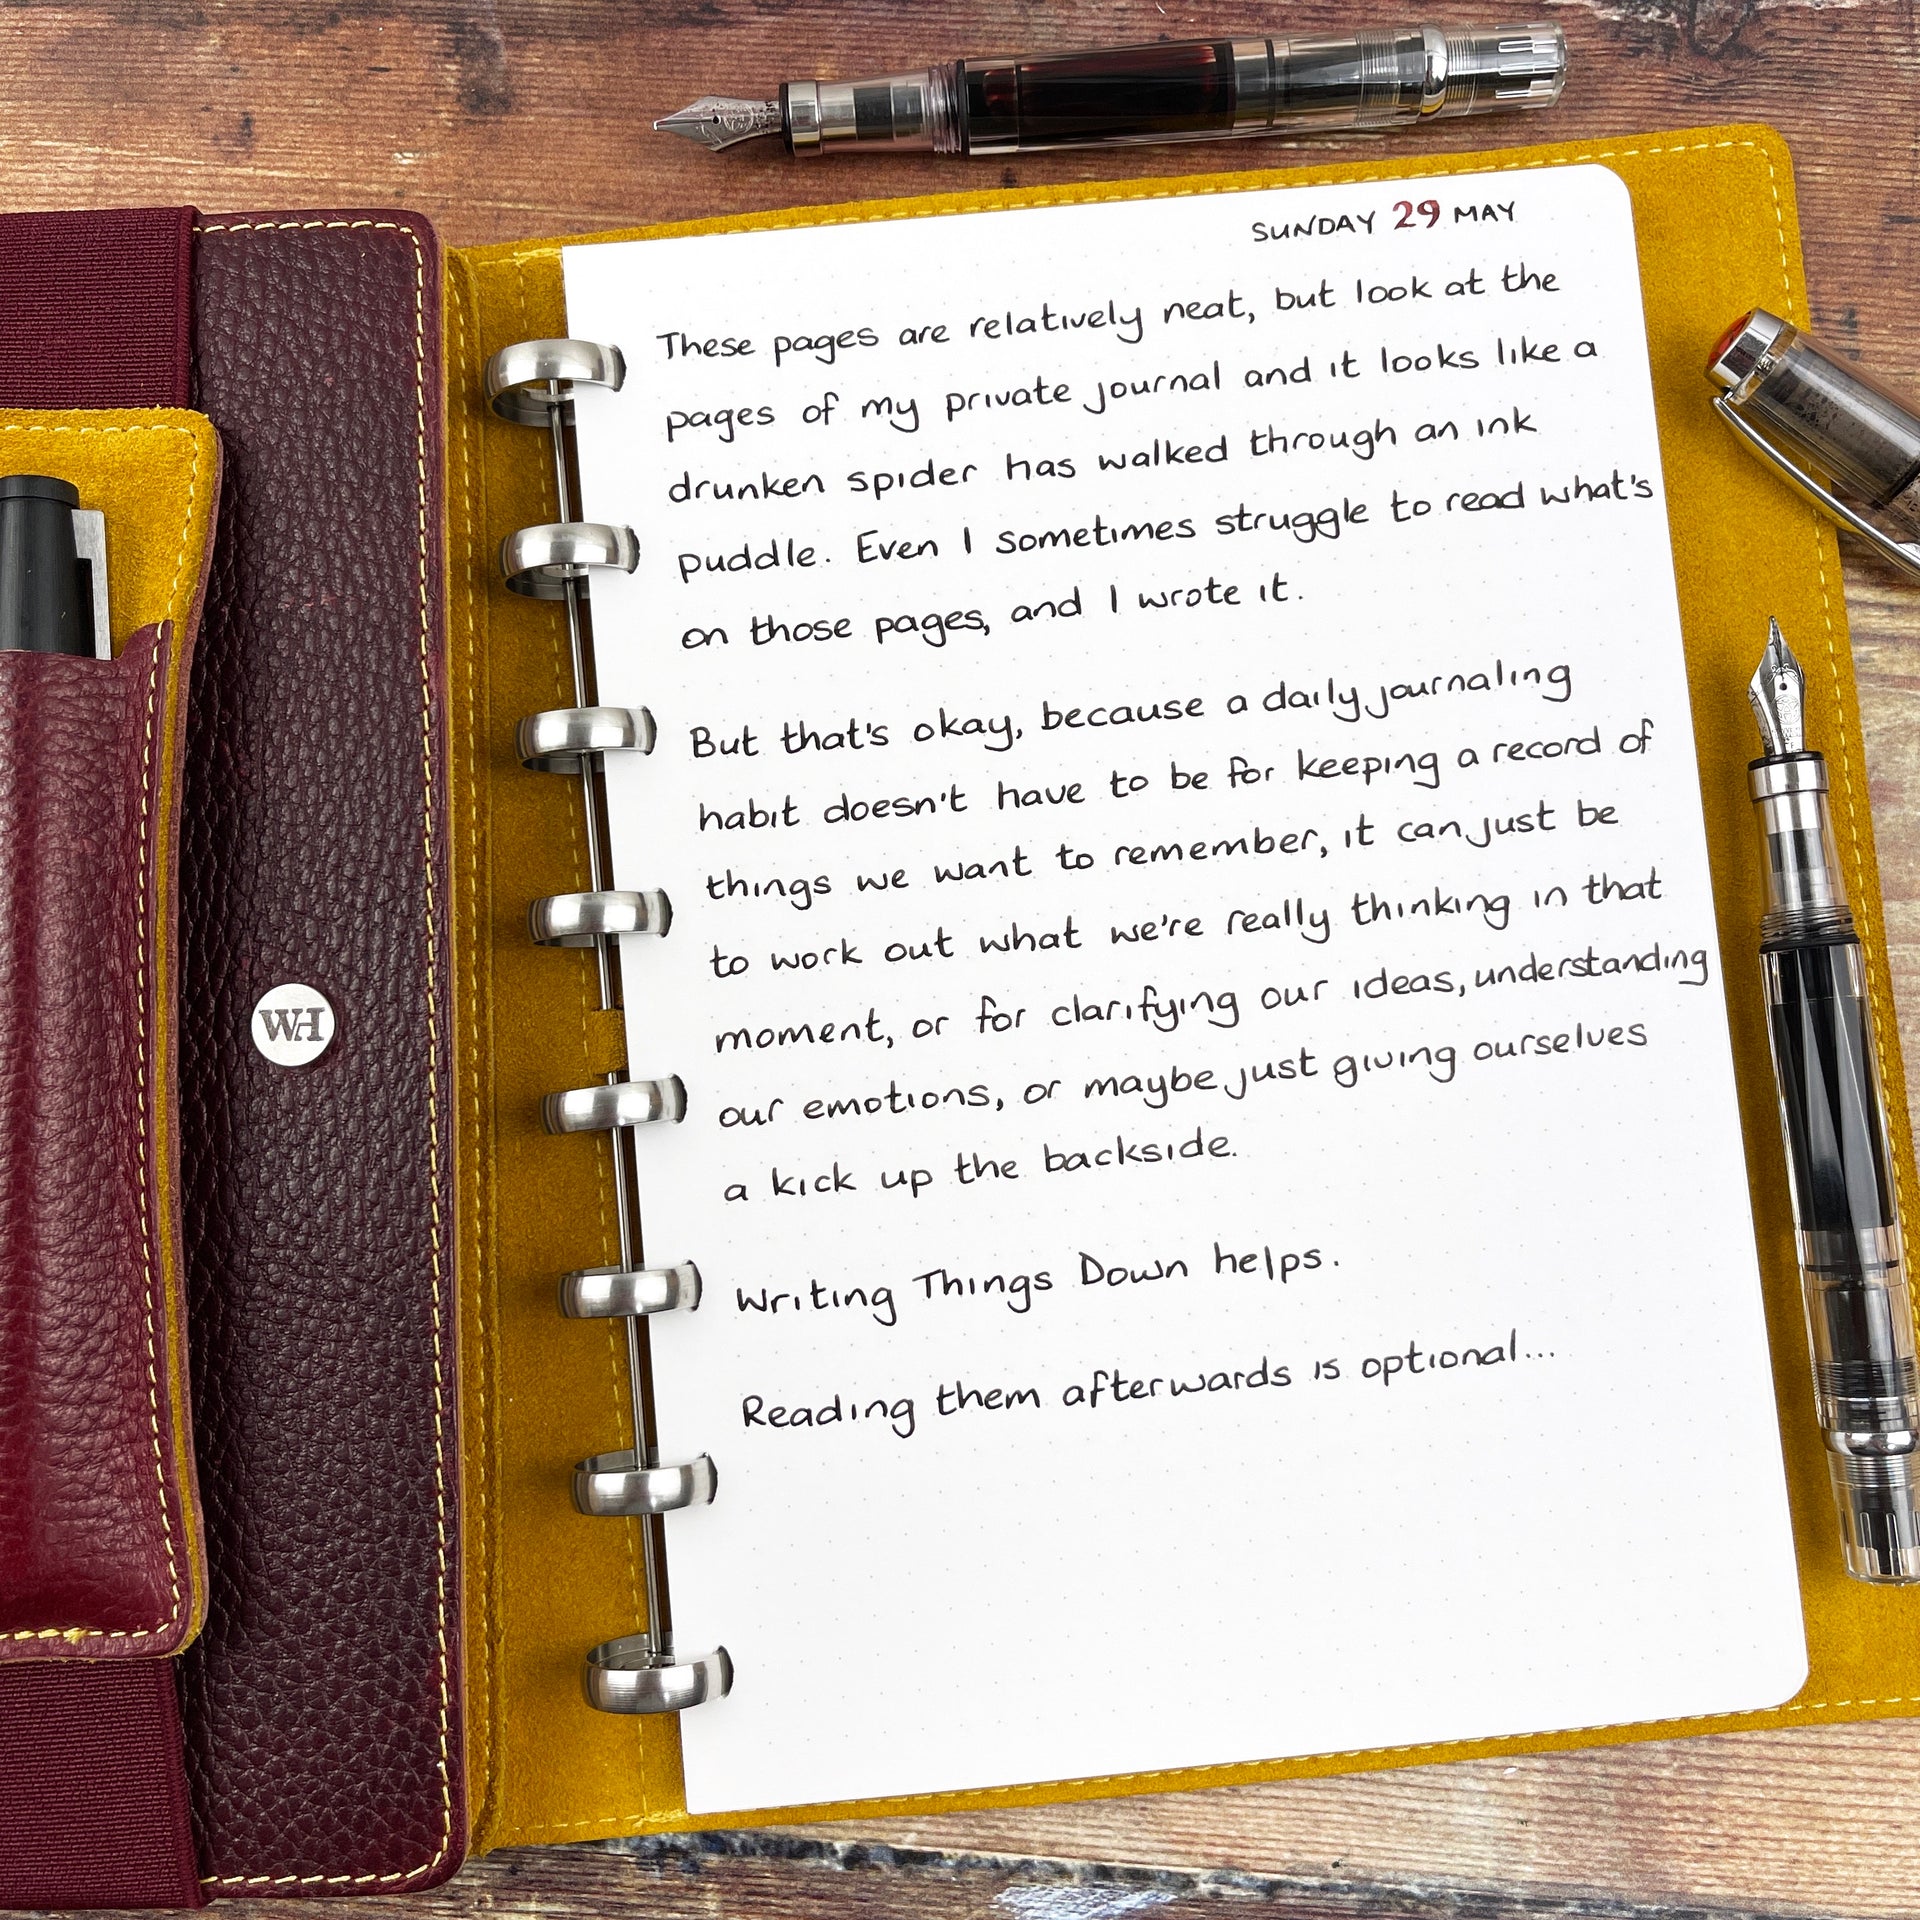 SUNDAY 29 MAY
These pages are relatively neat, but look at the
pages of my private journal and it looks like a
drunken spider has walked through an ink
puddle. Even I sometimes struggle to read what's
on those pages, and I wrote it.
But that's okay, because a daily journaling
habit doesn't have to be for keeping a record of
things we want to remember, it can just be
to work out what we're really thinking in that
moment, or for clarifying our ideas, understanding
our emotions, or maybe just giving ourselves
a kick up the backside.
Writing Things Down helps.
Reading them afterwards is optional...
WH